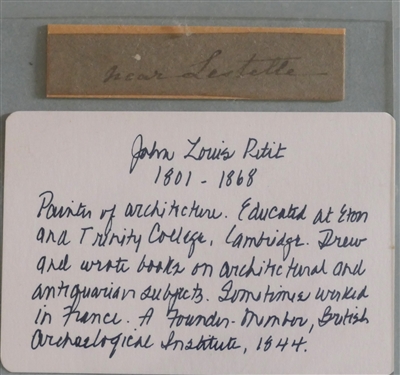 near Lestelle
John Louis Petit
1801 - 1868
Painter of architecture. Educated at Eton
and Trinity College, Cambridge. Drew
and wrote books on architectural and
antiquarian subjects. Sometimes worked
in France. A Founder-Member, British
Archaelogical Institute, 1844.